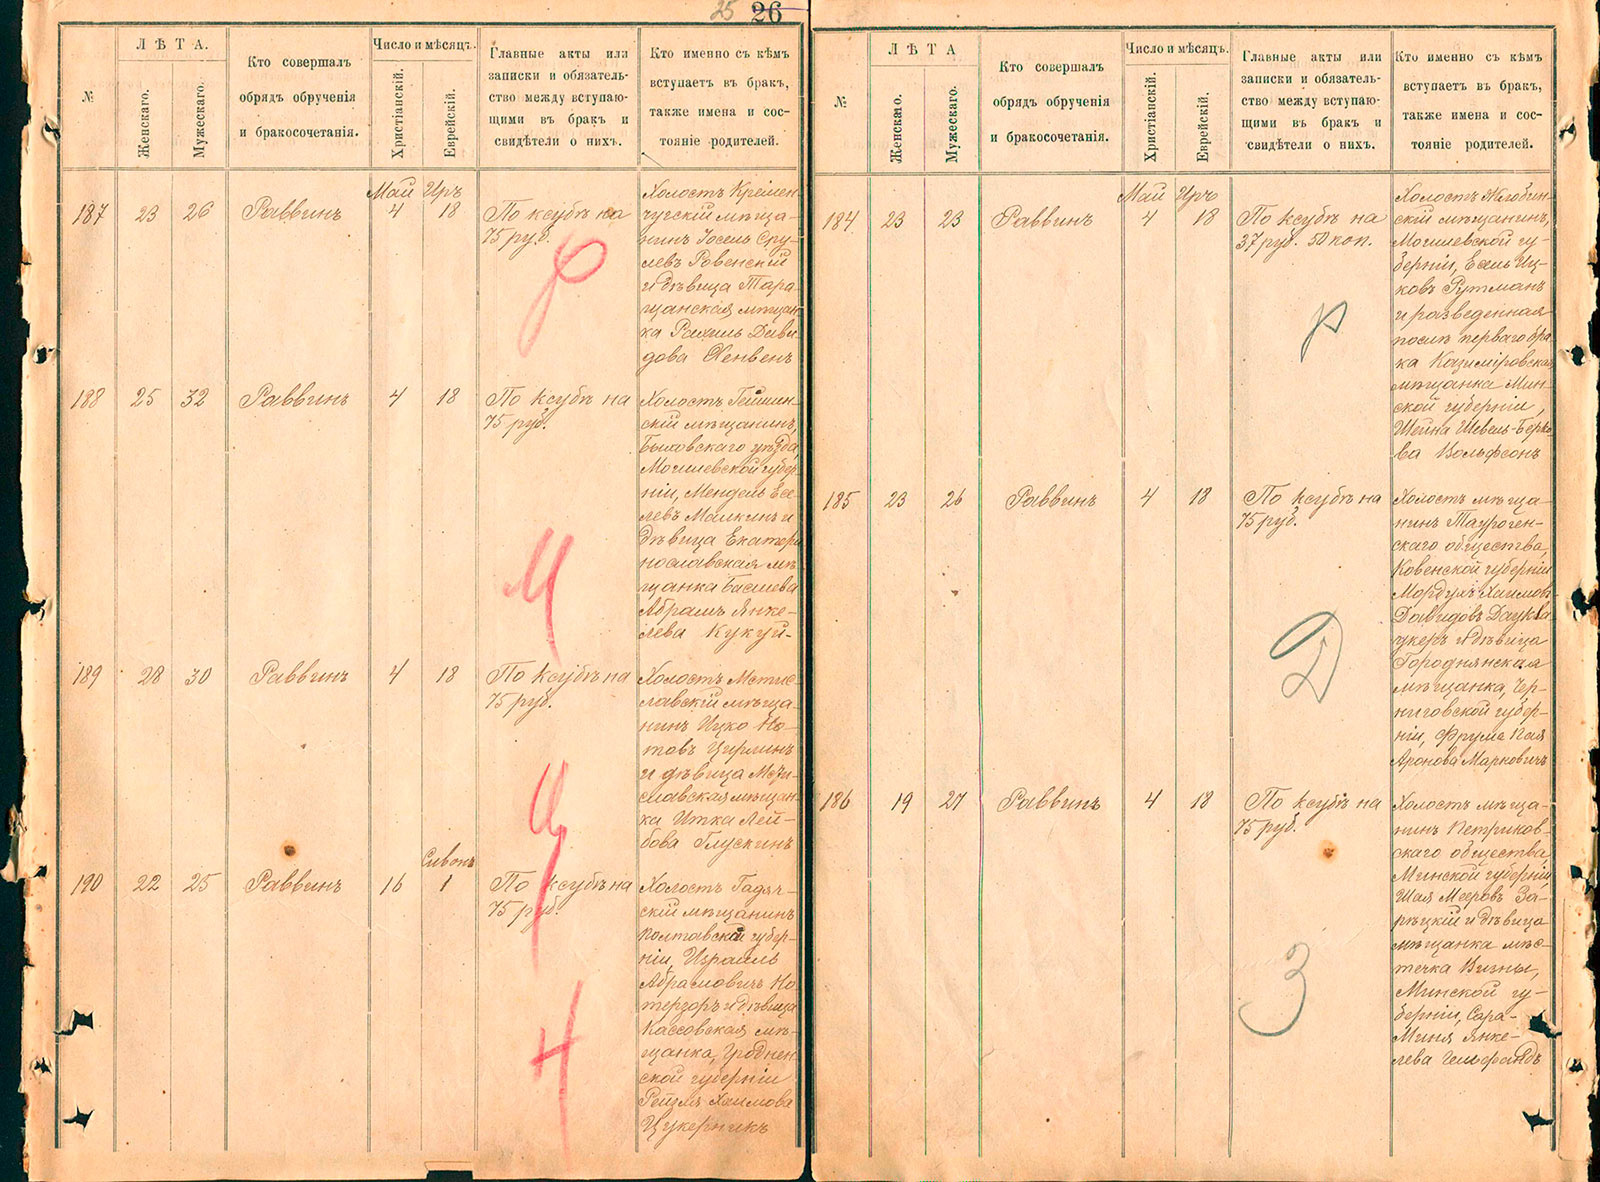 25 26
ЛѢТА.
Число и мѣсяцъ.
№
Женскаго.
Мужескаго.
Кто совершалъ
обрядъ обрученія
и бракосочетанія.
Христіанскій.
Еврейскій.
Главные акты или
записки и обязатель-
ство между вступаю-
щими въ бракъ и
свидѣтели о нихъ.
Кто именно съ кѣмъ
вступаетъ въ бракъ,
также имена и сос-
тояніе родителей.
Май Иръ
187 23 26 Раввинъ 4 18
По ксубѣ на
75 руб.
Холостъ Кремен-
чугскій мѣща-
нинъ Іосель Сру-
левъ Ровенскій
и дѣвица Тара-
щанская мѣщан-
ка Рахиль Дави-
дова Хенвенъ
Р
188 25 32 Раввинъ 4 18
По ксубѣ на
75 руб.
Холостъ
скій мѣщанинъ,
Быховскаго уѣзда,
Могилевской губер-
ніи, Мендель Есе-
левъ Малкинъ и
дѣвица Екатери-
нославская мѣ-
щанка Басшева
Абрамъ Янке-
лева Кукуй-
М
189 28 30 Раввинъ 4 18
По ксубѣ на
75 руб.
Холостъ Мстис-
лавскій мѣща-
нинъ Ицко Но-
товъ Цирлинъ
и дѣвица Мсти-
славская мѣщан-
ка Итка Лей-
бова Глускинъ
Ц
Сивонъ
190 22 25 Раввинъ 16 1
По ксубѣ на
75 руб.
Холостъ Гадяч-
скій мѣщанинъ
Полтавской губер-
ніи, Израиль
Абрамовичъ Но-
терзоръ и дѣвица
Кассовская мѣ-
щанка, Гроднен-
ской губерніи
Рейзля Хаимова
Цукерникъ
Н
ЛѢТА
Число и мѣсяцъ.
№
Женскаго.
Мужескаго.
Кто совершалъ
обрядъ обрученія
и бракосочетанія.
Христіанскій.
Еврейскій.
Главные акты или
записки и обязатель-
ство между вступаю-
щими въ бракъ и
свидѣтели о нихъ.
Кто именно съ кѣмъ
вступаетъ въ бракъ,
также имена и сос-
тояніе родителей.
Май Иръ
184 23 23 Раввинъ 4 18
По ксубѣ на
37 руб. 50 коп.
Холостъ Жлобин-
скій мѣщанинъ,
Могилевской гу-
берніи, Есель Иц-
ковъ Рутманъ
и разведенная
послѣ перваго бра-
ка Казиміровская
мѣщанка Мин-
ской губерніи,
Шейна Шевель-Берко-
ва Вольфсонъ
Р
185 23 26 Раввинъ 4 18
По ксубѣ на
75 руб.
Холостъ мѣща-
нинъ Тауроген-
скаго общества,
Ковенской губерніи
Мордухъ Хаимовъ
Давидовъ Даукша-
цкеръ и дѣвица
Городнянская
мѣщанка, Чер-
ниговской губер-
ніи, Фрума Пая
Аронова Марковичъ
Д
186 19 27 Раввинъ 4 18
По ксубѣ на
75 руб.
Холостъ мѣща-
нинъ Петриков-
скаго общества
Минской губерніи
Шая Мееровъ За-
рѣцкій и дѣвица
мѣщанка мѣс-
течка Визны,
Минской гу-
берніи, Сара-
Миня Янке-
лева Гельфандъ
З